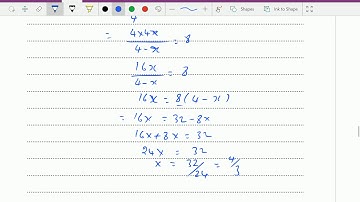 Shapes Ink to Shape
4
= 4x4x / 4-x = 8
16x / 4-x = 8
16x = 8(4-x)
= 16x = 32-8x
16x+8x = 32
24x = 32
x = 32/24 = 4/3